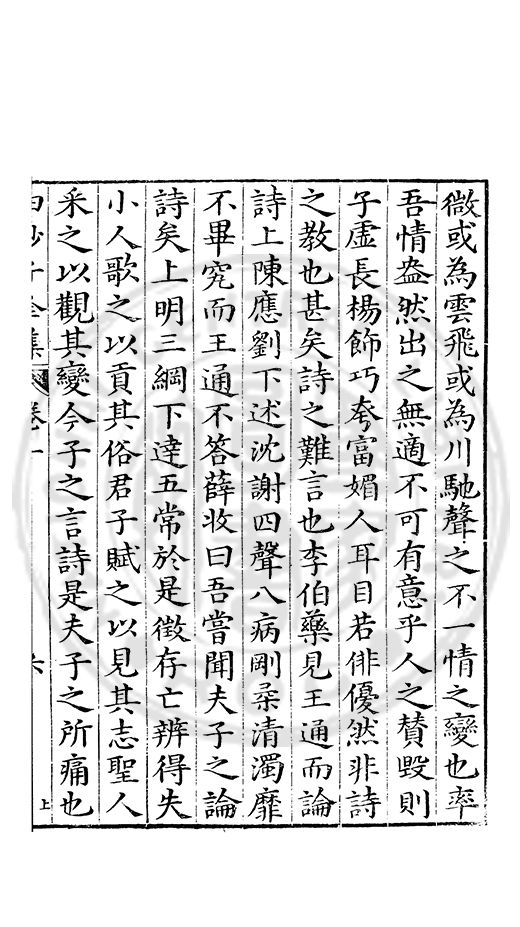 微或為雲飛或為川馳聲之不一情之變也率
吾情盎然出之無適不可有意乎人之賛毀則
子虛長楊飾巧夸富媚人耳目若俳優然非詩
之教也甚矣詩之難言也李伯藥見王通而論
詩上陳應劉下述沈謝四聲八病剛柔清濁靡
不畢究而王通不答薛收曰吾嘗聞夫子之論
詩矣上明三綱下達五常於是徵存亡辨得失
小人歌之以貢其俗君子賦之以見其志聖人
采之以觀其變今子之言詩是夫子之所痛也
白沙子全集 卷一 六 上